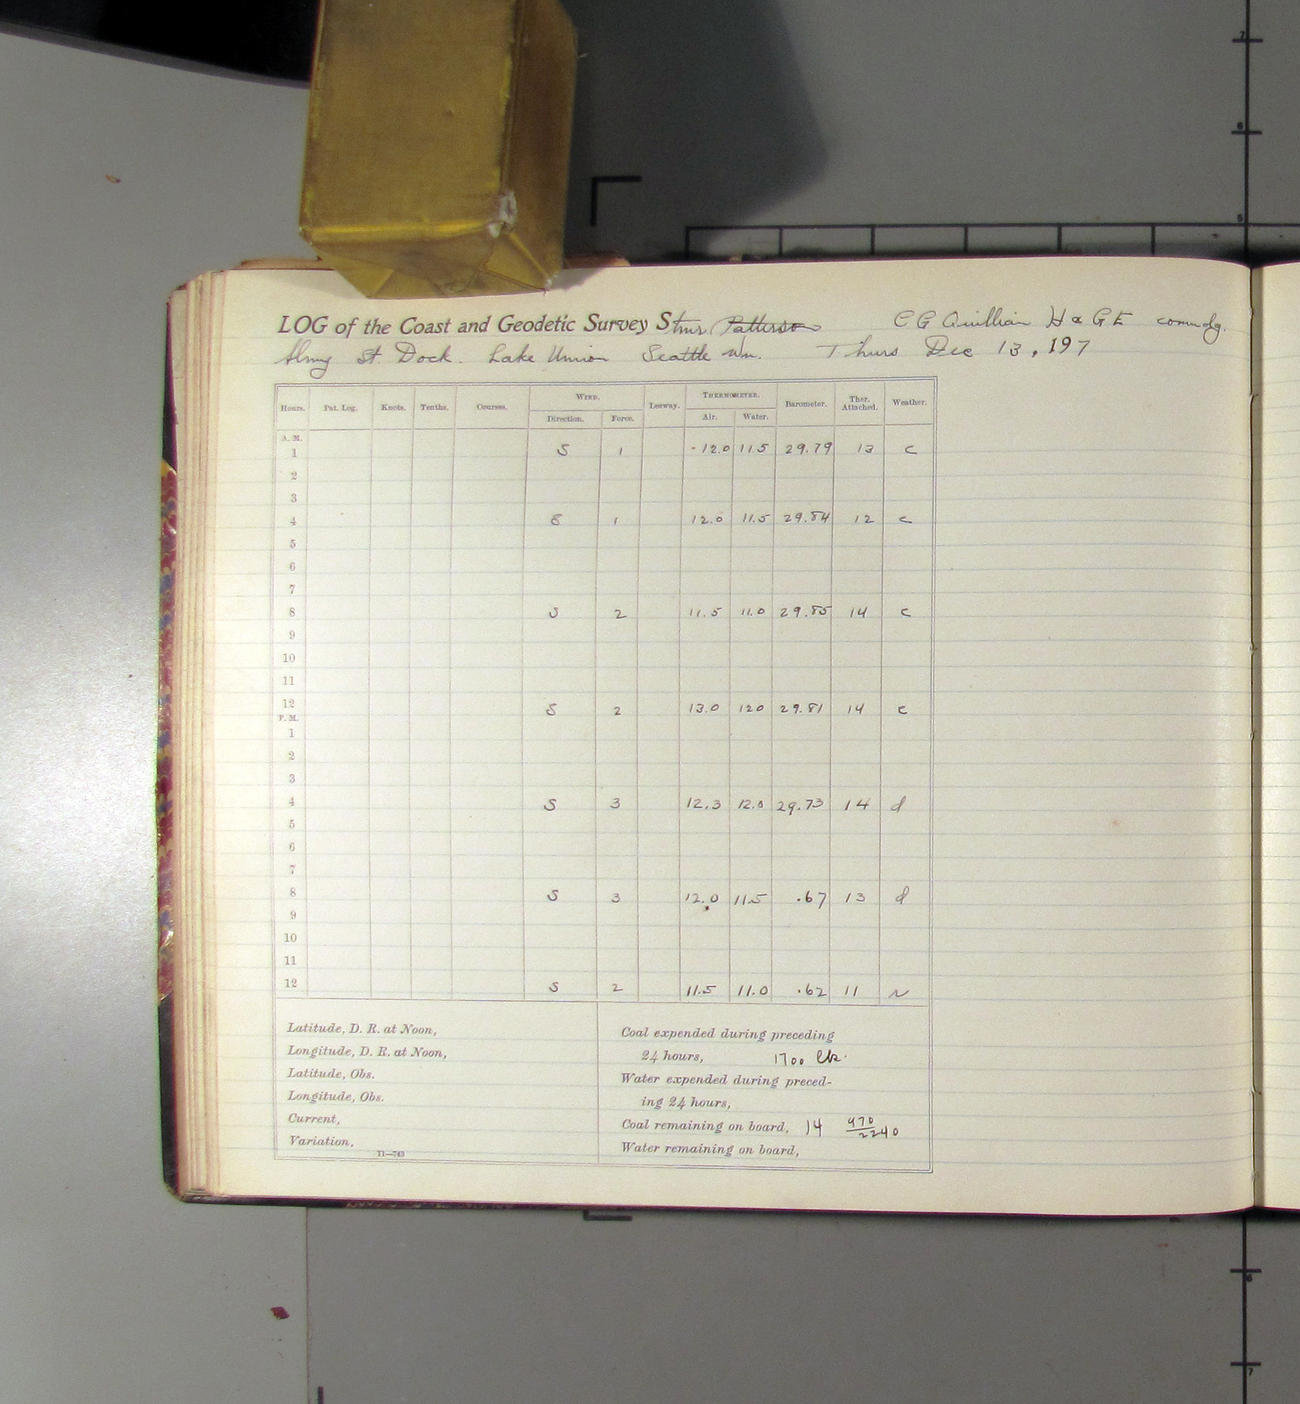 LOG of the Coast and Geodetic Survey Stmr. Patterson C G Quillian H & G E commdg.
St. Dock. Lake Union Seattle Wn. Thurs Dec 13, 197
Hours. Pat. Log. Knots. Tenths. Courses. WIND. Leeway. THERMOMETER. Barometer. Ther. Attached. Weather.
Direction. Force. Air. Water.
A. M.
1 S 1 -12.0 11.5 29.79 13 c
2
3
4 S 1 12.0 11.5 29.84 12 c
5
6
7
8 S 2 11.5 11.0 29.85 14 c
9
10
11
12 S 2 13.0 120 29.81 14 c
P. M.
1
2
3
4 S 3 12.3 12.0 29.73 14 d
5
6
7
8 S 3 12.0 11.5 .67 13 d
9
10
11
12 S 2 11.5 11.0 .62 11 r
Latitude, D. R. at Noon,
Longitude, D. R. at Noon,
Latitude, Obs.
Longitude, Obs.
Current,
Variation,
11—743
Coal expended during preceding
24 hours, 1700 lbs.
Water expended during preced-
ing 24 hours,
Coal remaining on board, 14 970/2240
Water remaining on board,
7
6
5
6
7